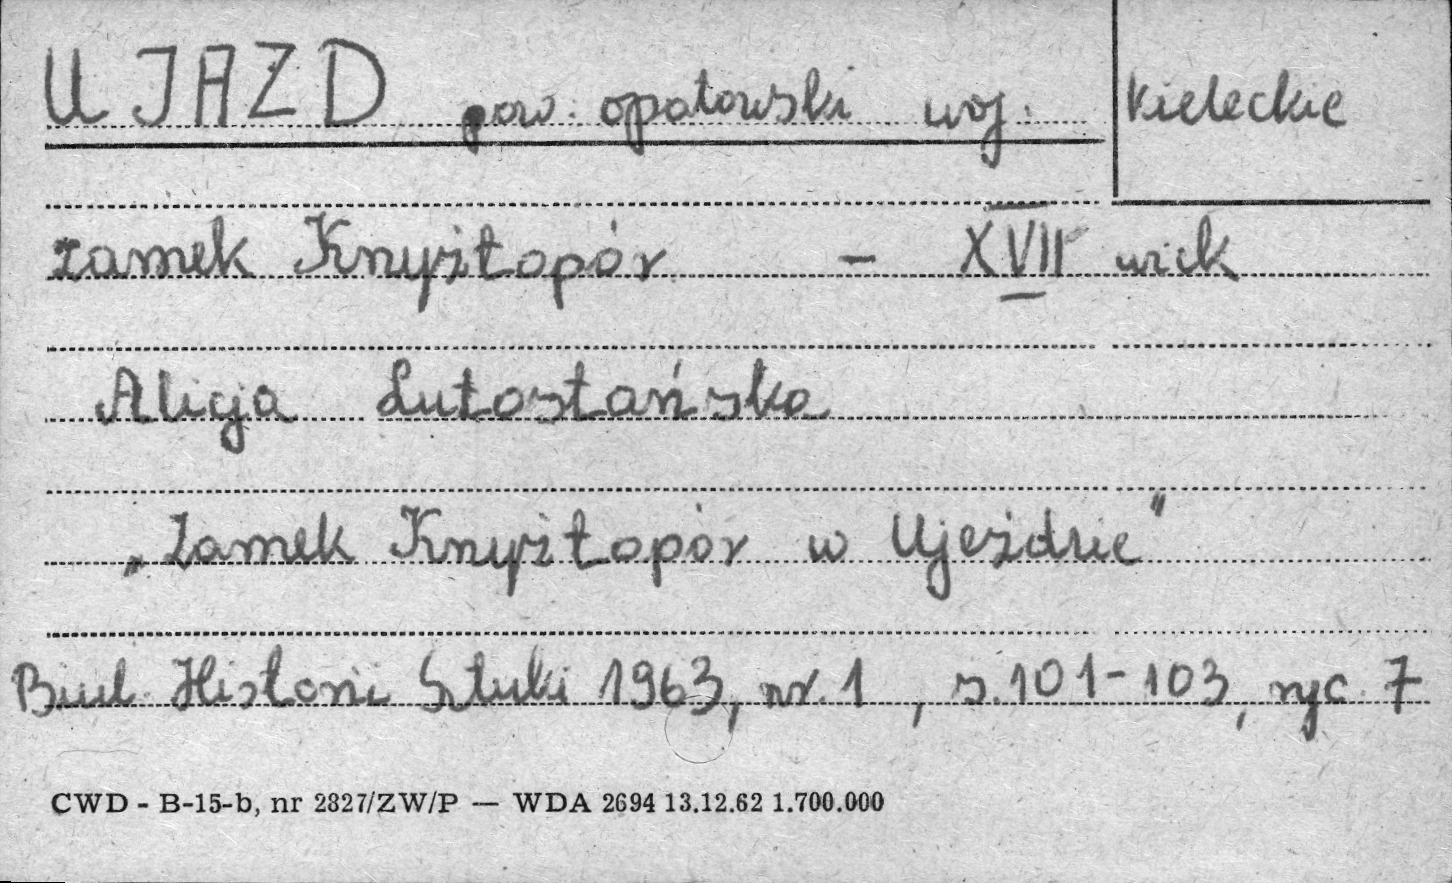 UJAZD pow. opatowski woj. Kieleckie
zamek Krzyżtopór – XVII wiek
Alicja Lutostańska
„Zamek Krzyżtopór w Ujeździe"
Biul. Historii Sztuki 1963, nr. 1, s. 101-103, ryc. 7
CWD - B-15-b, nr 2327/ZW/P — WDA 2694 13.12.62 1.700.000